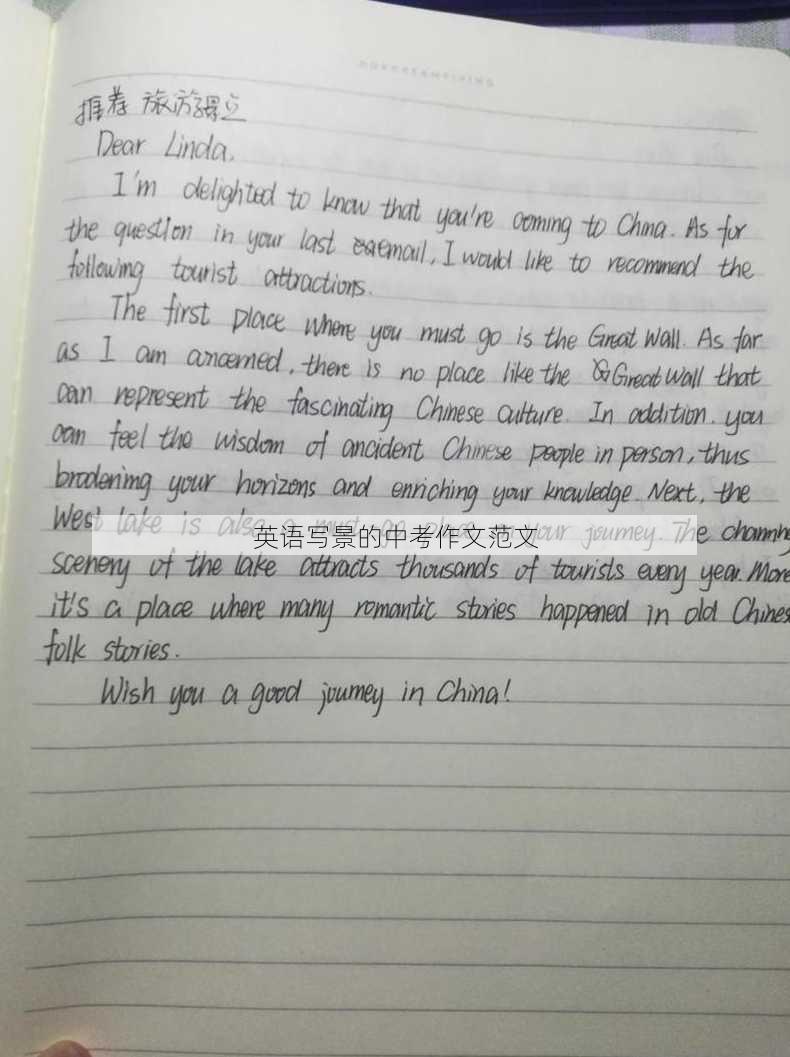 推荐 旅游景点
Dear Linda,
I'm delighted to know that you're coming to China. As for
the question in your last email, I would like to recommend the
following tourist attractions.
The first place where you must go is the Great Wall. As far
as I am concerned, there is no place like the Great Wall that
can represent the fascinating Chinese culture. In addition, you
can feel the wisdom of ancident Chinese people in person, thus
brodening your horizons and enriching your knowledge. Next, the
West lake is also a must go place in your journey. The charming
英语写景的中考作文范文
scenery of the lake attracts thousands of tourists every year. More
it's a place where many romantic stories happened in old Chines
folk stories.
Wish you a good journey in China!